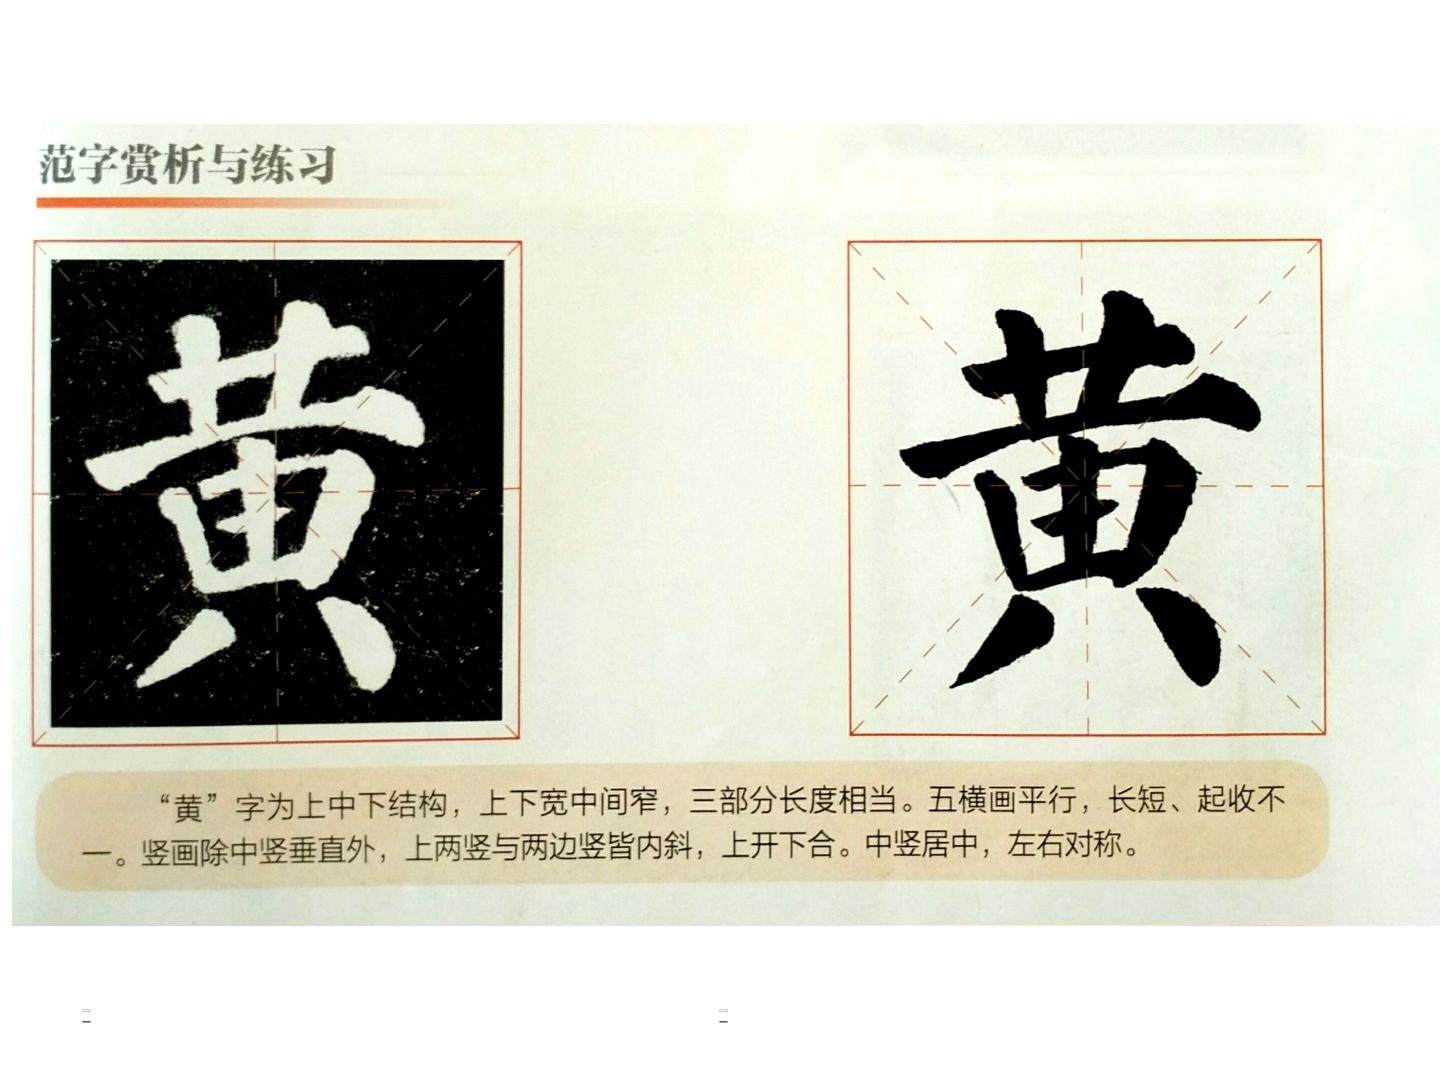 范字赏析与练习
黄
黄
“黄”字为上中下结构，上下宽中间窄，三部分长度相当。五横画平行，长短、起收不
一。竖画除中竖垂直外，上两竖与两边竖皆内斜，上开下合。中竖居中，左右对称。